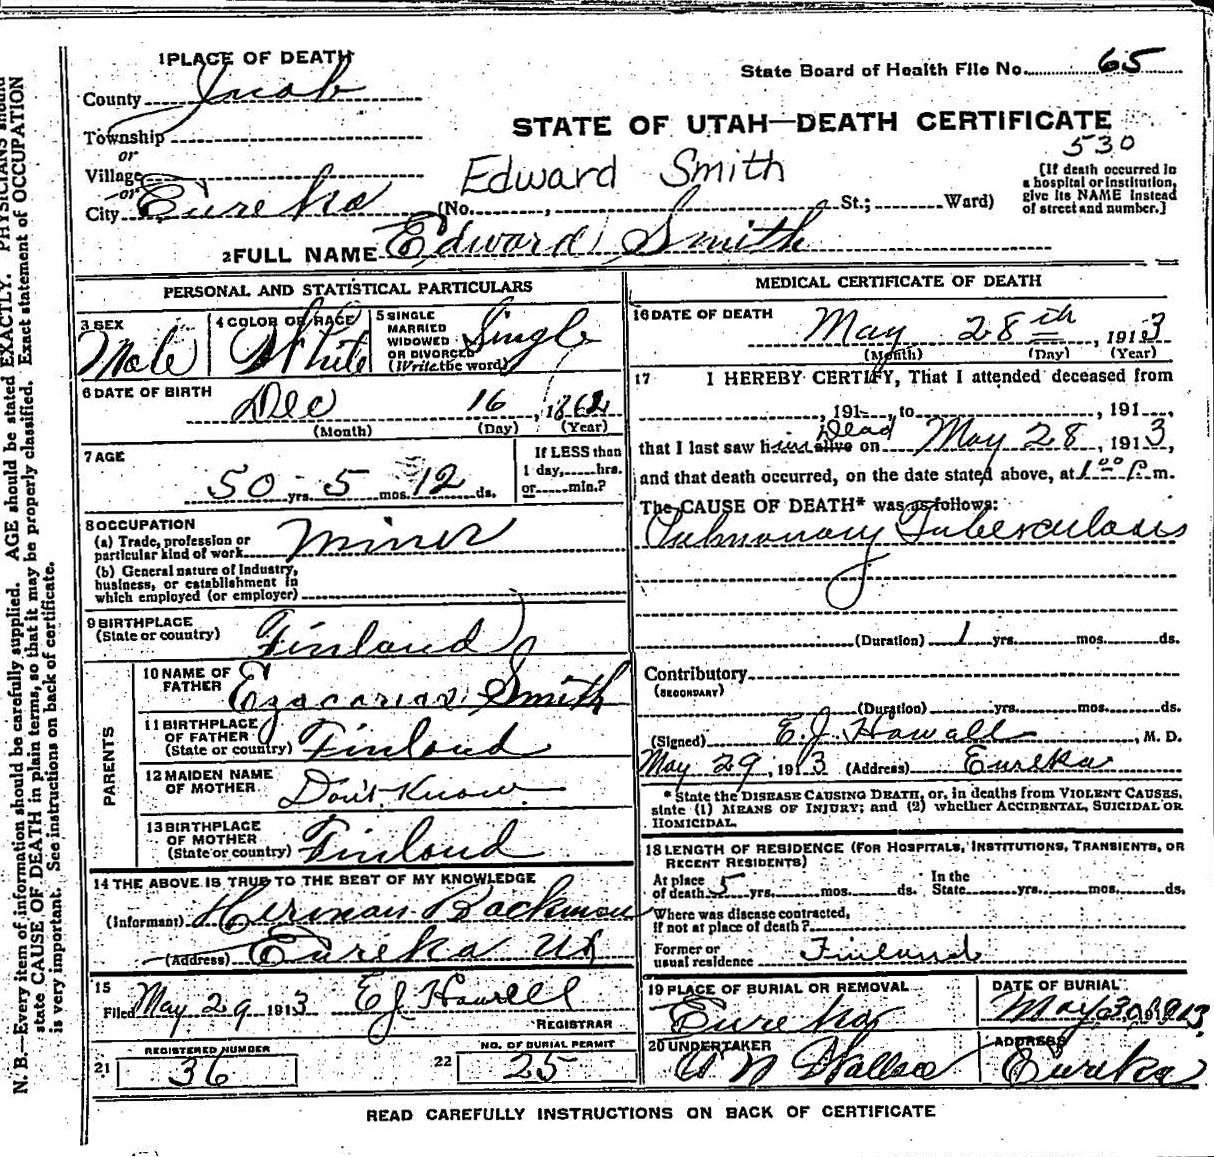 1 PLACE OF DEATH
State Board of Health File No. 65
County Juab
Township
STATE OF UTAH—DEATH CERTIFICATE
530
or
Village
Edward Smith
or
City Eureka (No. , St.; Ward)
[If death occurred in a hospital or institution, give its NAME instead of street and number.]
2 FULL NAME Edward Smith
PERSONAL AND STATISTICAL PARTICULARS
3 SEX Male
4 COLOR OR RACE White
5 SINGLE MARRIED WIDOWED OR DIVORCED (Write the word) Single
6 DATE OF BIRTH Dec 16, 1862
(Month) (Day) (Year)
7 AGE
50 yrs. 5 mos. 12 ds.
If LESS than 1 day, hrs. or min.?
8 OCCUPATION
(a) Trade, profession or particular kind of work Miner
(b) General nature of industry, business, or establishment in which employed (or employer)
9 BIRTHPLACE
(State or country) Finland
PARENTS
10 NAME OF FATHER Ezacarias Smith
11 BIRTHPLACE OF FATHER (State or country) Finland
12 MAIDEN NAME OF MOTHER Don't Know
13 BIRTHPLACE OF MOTHER (State or country) Finland
14 THE ABOVE IS TRUE TO THE BEST OF MY KNOWLEDGE
(Informant) Herman Backman
(Address) Eureka Ut
15
Filed May 29 1913 E J Howell
REGISTRAR
21 REGISTERED NUMBER 36
22 NO. OF BURIAL PERMIT 25
MEDICAL CERTIFICATE OF DEATH
16 DATE OF DEATH May 28th, 1913
(Month) (Day) (Year)
17 I HEREBY CERTIFY, That I attended deceased from
, 191 , to , 191 ,
that I last saw him alive Dead on May 28, 1913,
and that death occurred, on the date stated above, at 1 00 P. m.
The CAUSE OF DEATH* was as follows:
Pulmonary Tuberculosis
(Duration) 1 yrs. mos. ds.
Contributory
(SECONDARY)
(Duration) yrs. mos. ds.
(Signed) E. J. Howell, M. D.
May 29, 1913 (Address) Eureka
* State the DISEASE CAUSING DEATH, or, in deaths from VIOLENT CAUSES,
state (1) MEANS OF INJURY; and (2) whether ACCIDENTAL, SUICIDAL OR
HOMICIDAL.
18 LENGTH OF RESIDENCE (FOR HOSPITALS, INSTITUTIONS, TRANSIENTS, OR
RECENT RESIDENTS)
At place of death 5 yrs. mos. ds. In the State yrs. mos. ds.
Where was disease contracted,
if not at place of death?
Former or
usual residence Finland
19 PLACE OF BURIAL OR REMOVAL
Eureka
DATE OF BURIAL
May 30, 1913
20 UNDERTAKER
ADDRESS
Eureka
READ CAREFULLY INSTRUCTIONS ON BACK OF CERTIFICATE
N. B.—Every item of information should be carefully supplied. AGE should be stated EXACTLY. PHYSICIANS should
state CAUSE OF DEATH in plain terms, so that it may be properly classified. Exact statement of OCCUPATION
is very important. See instructions on back of certificate.